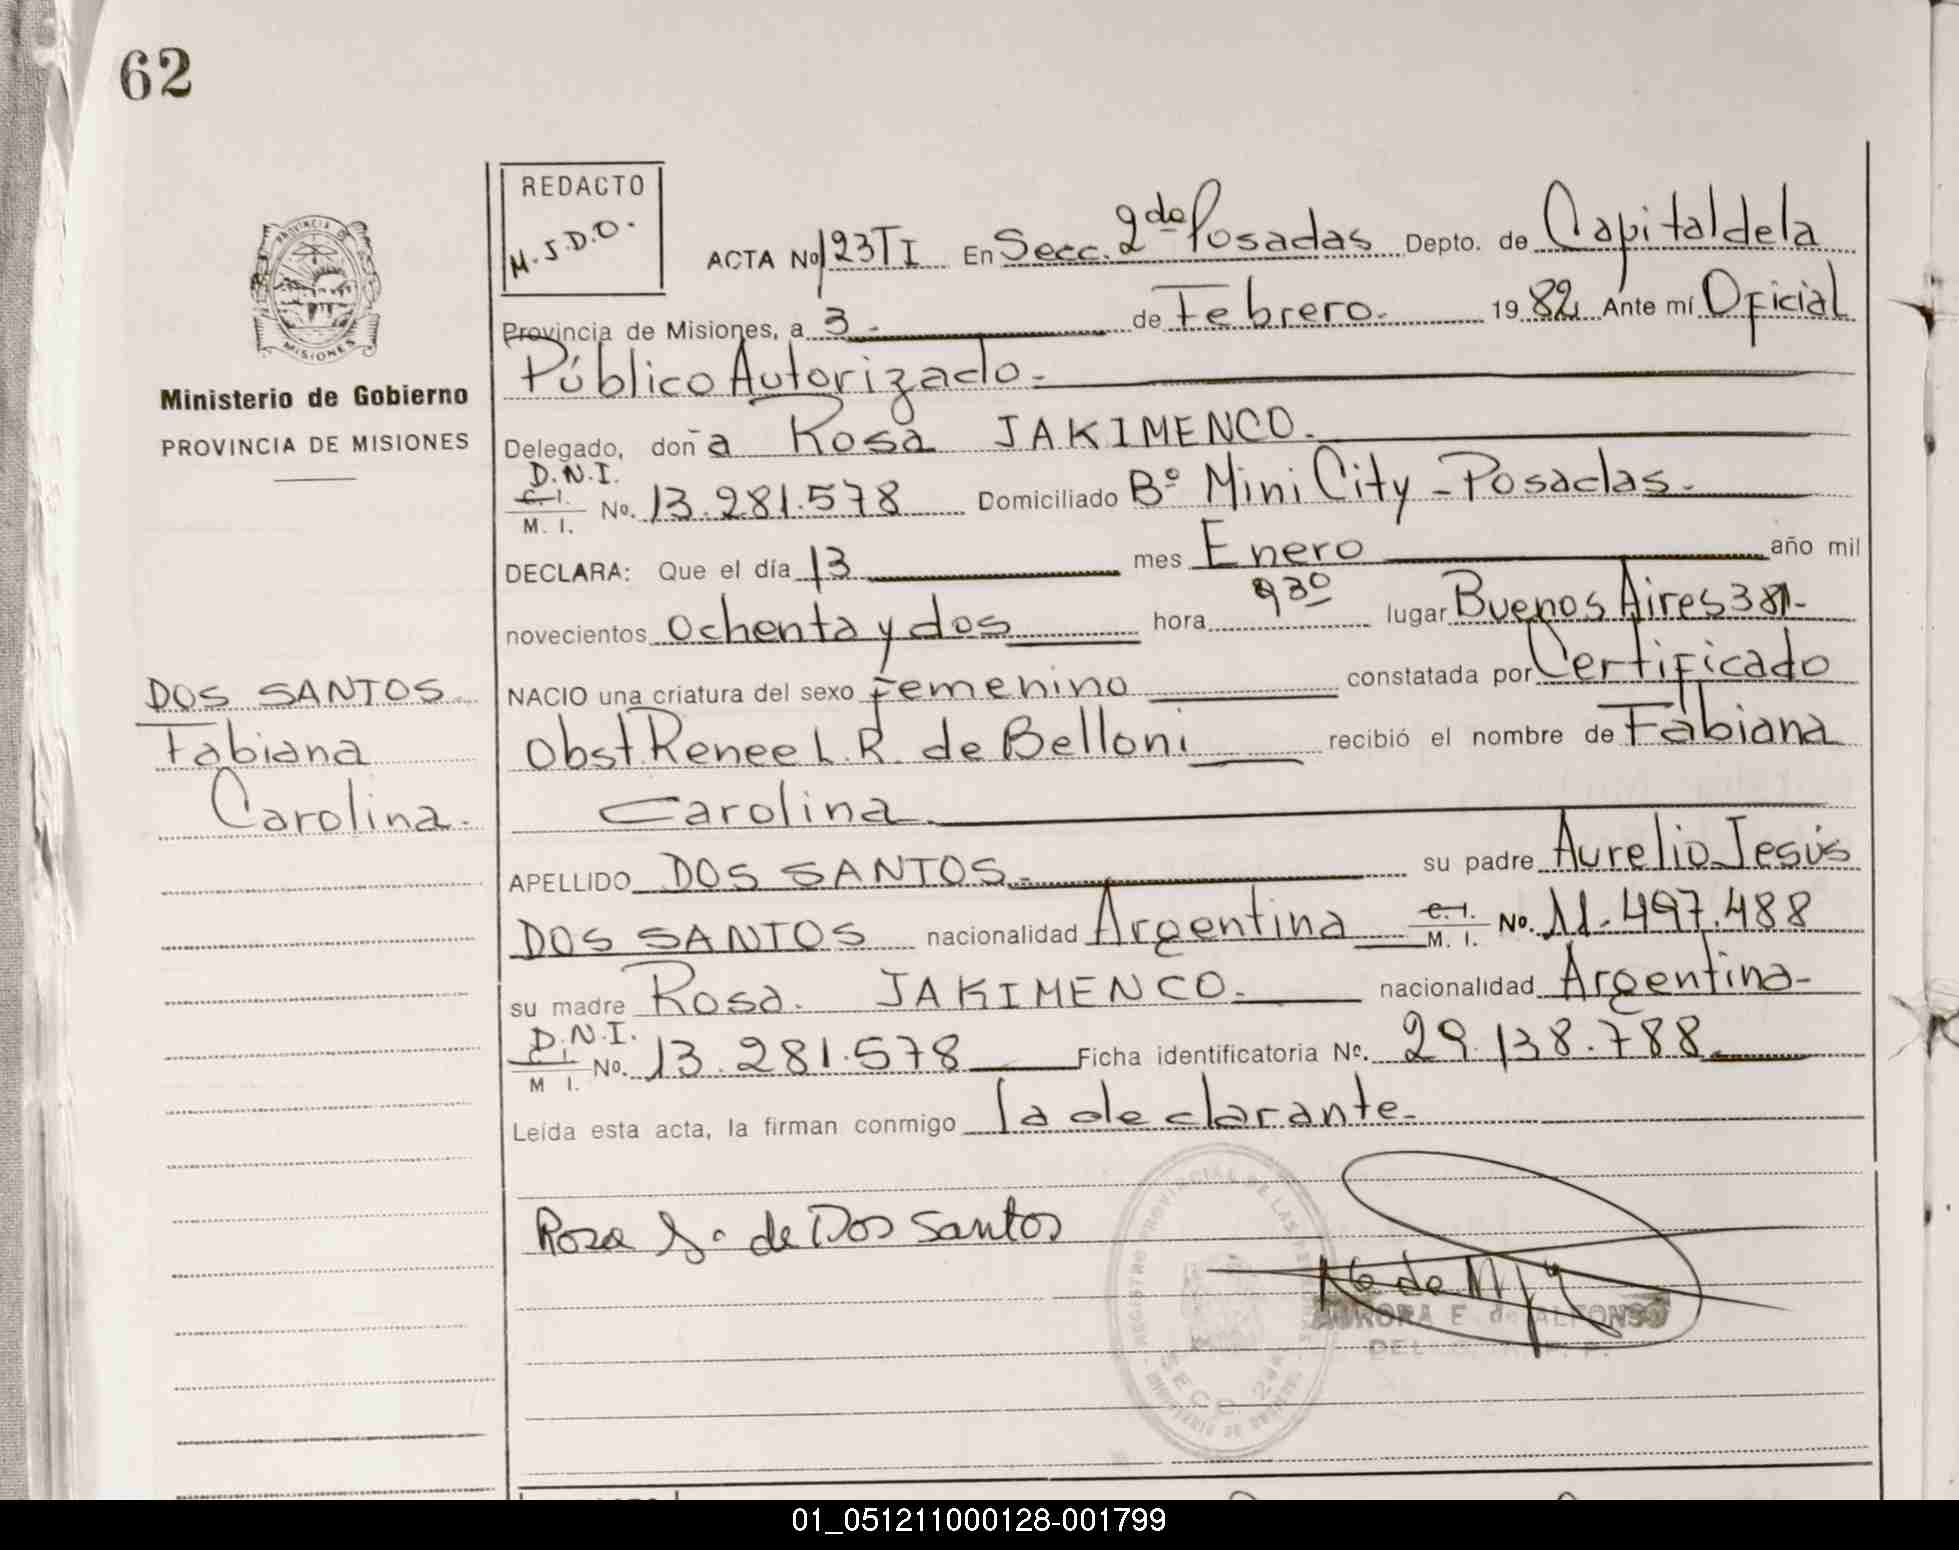 62
REDACTO
M.S.D.O.
ACTA No 123 T I En Secc. 2da Posadas Depto. de Capital de la
Provincia de Misiones, a 3.- de Febrero.- 19 82 Ante mí Oficial
Público Autorizado.-
Delegado, doña Rosa JAKIMENCO.
D.N.I. C. I. M. I. No. 13.281.578 Domiciliado Bº Mini City - Posadas.-
DECLARA: Que el día 13 mes Enero año mil
novecientos ochenta y dos hora 930 lugar Buenos Aires 381.-
NACIO una criatura del sexo femenino constatada por Certificado
Obst. Renee L. R. de Belloni recibió el nombre de Fabiana
Carolina
APELLIDO DOS SANTOS.- su padre Aurelio Jesús
DOS SANTOS nacionalidad Argentina C. I. M. I. No. 11.497.488
su madre Rosa. JAKIMENCO.- nacionalidad Argentina-
D.N.I. C. I. M I. No. 13.281.578 Ficha identificatoria No. 29.138.788
Leída esta acta, la firman conmigo la declarante.-
Rosa J. de Dos Santos
AURORA E. de ALFONSO
REGISTRO PROVINCIAL DE LAS PERSONAS
SECC. 2da
MISIONES
Ministerio de Gobierno
PROVINCIA DE MISIONES
DOS SANTOS
Fabiana
Carolina.
01_051211000128-001799